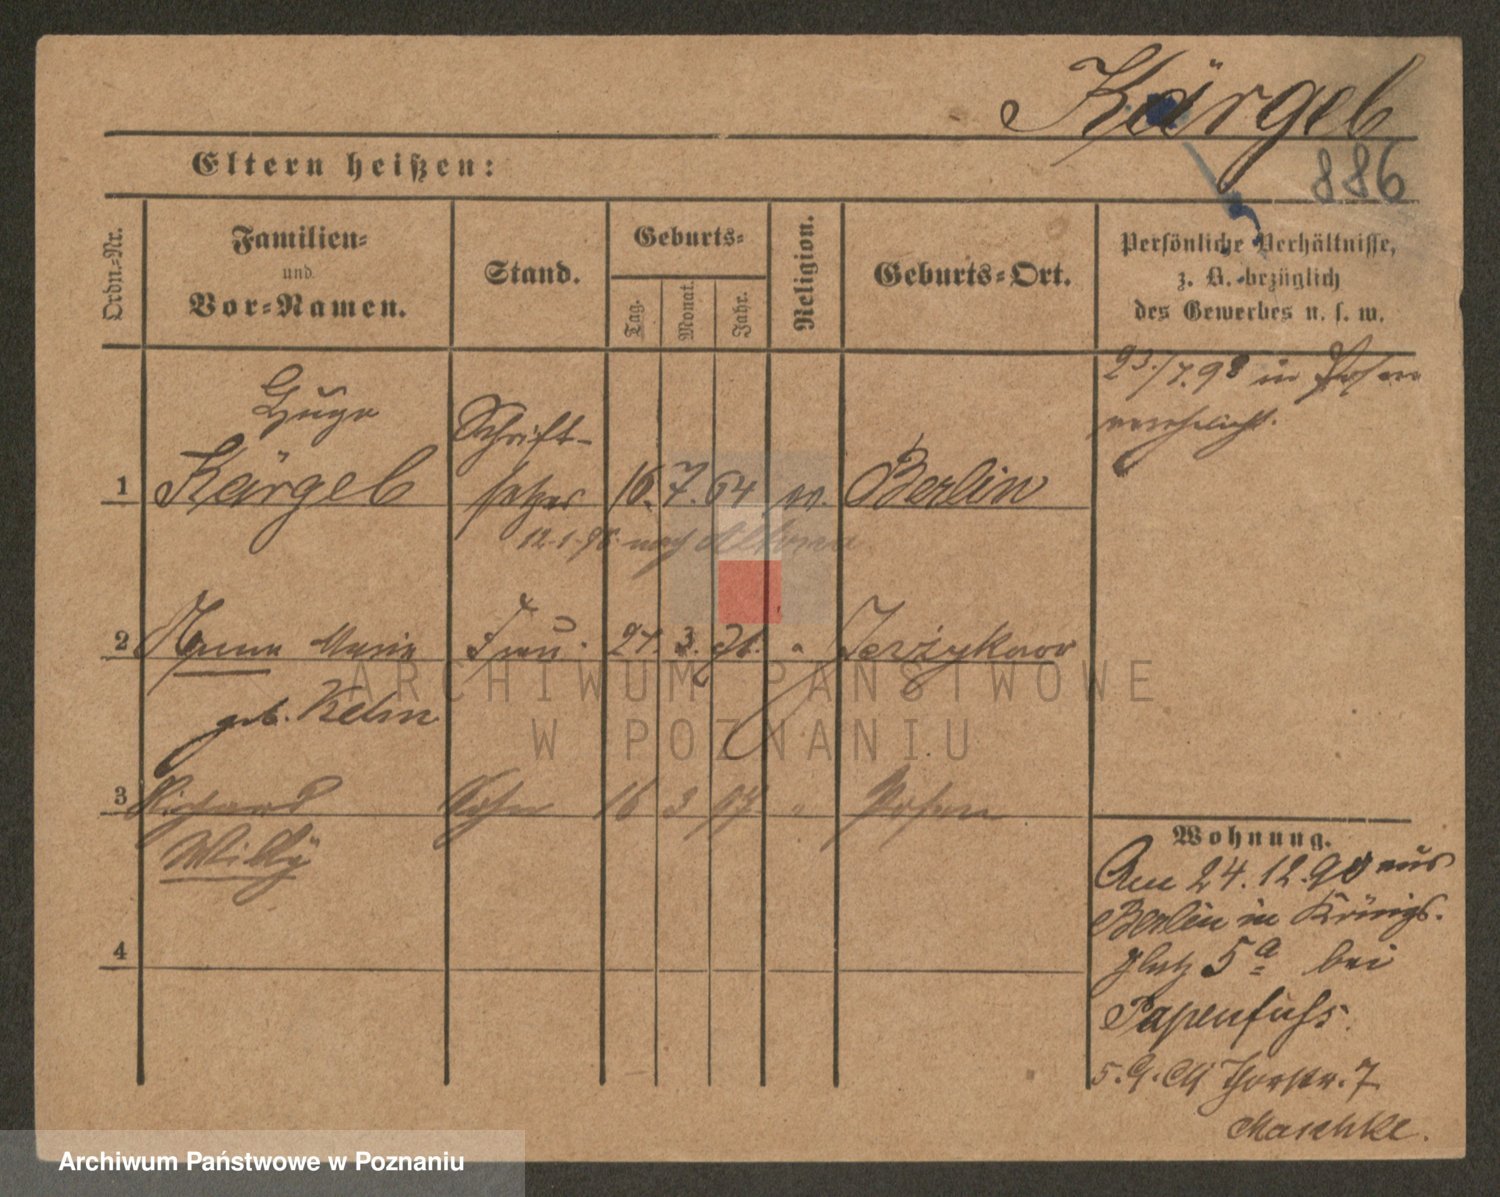 Kärgel
886
Eltern heißen:
Ordn.-Nr.
Familien- und Vor-Namen.
Stand.
Geburts-
Tag.
Monat.
Jahr.
Religion.
Geburts-Ort.
Persönliche Verhältnisse,
z. B. bezüglich
des Gewerbes u. s. w.
23./7.98 in Posen
verehelicht.
Hugo
1 Kärgel Schriftsetzer 16. 7. 64 ev. Berlin
12.1.98 nach Altona
2 Marie Frau 24. 3. Jerzykowo
geb.
3 Richard Sohn 16 3 97 " Posen
Willy
4
Wohnung.
Am 24.12.90 aus
Berlin in Königs-
platz 5a bei
Papenfuß.
5. Thorstr. 7
Maschke.
ARCHIWUM PAŃSTWOWE
W POZNANIU
Archiwum Państwowe w Poznaniu